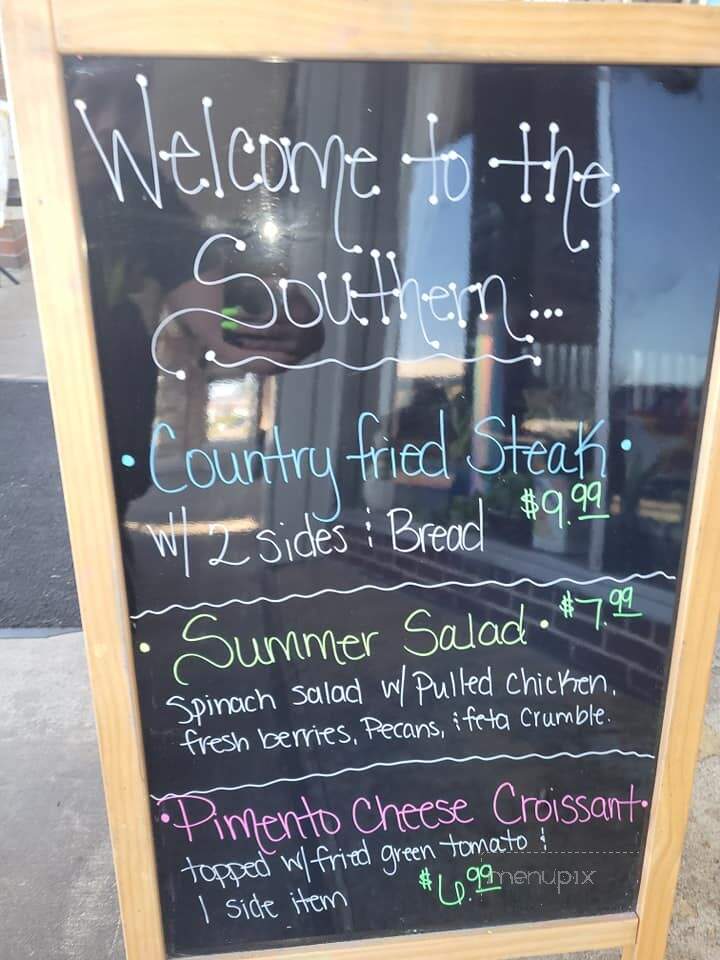 Welcome to the
Southern...
• Country fried Steak •
w/ 2 sides & Bread $9.99
• Summer Salad • $7.99
Spinach salad w/ Pulled Chicken,
fresh berries, Pecans, & feta Crumble.
• Pimento Cheese Croissant •
topped w/ fried green tomato &
1 side item $6.99
menupix